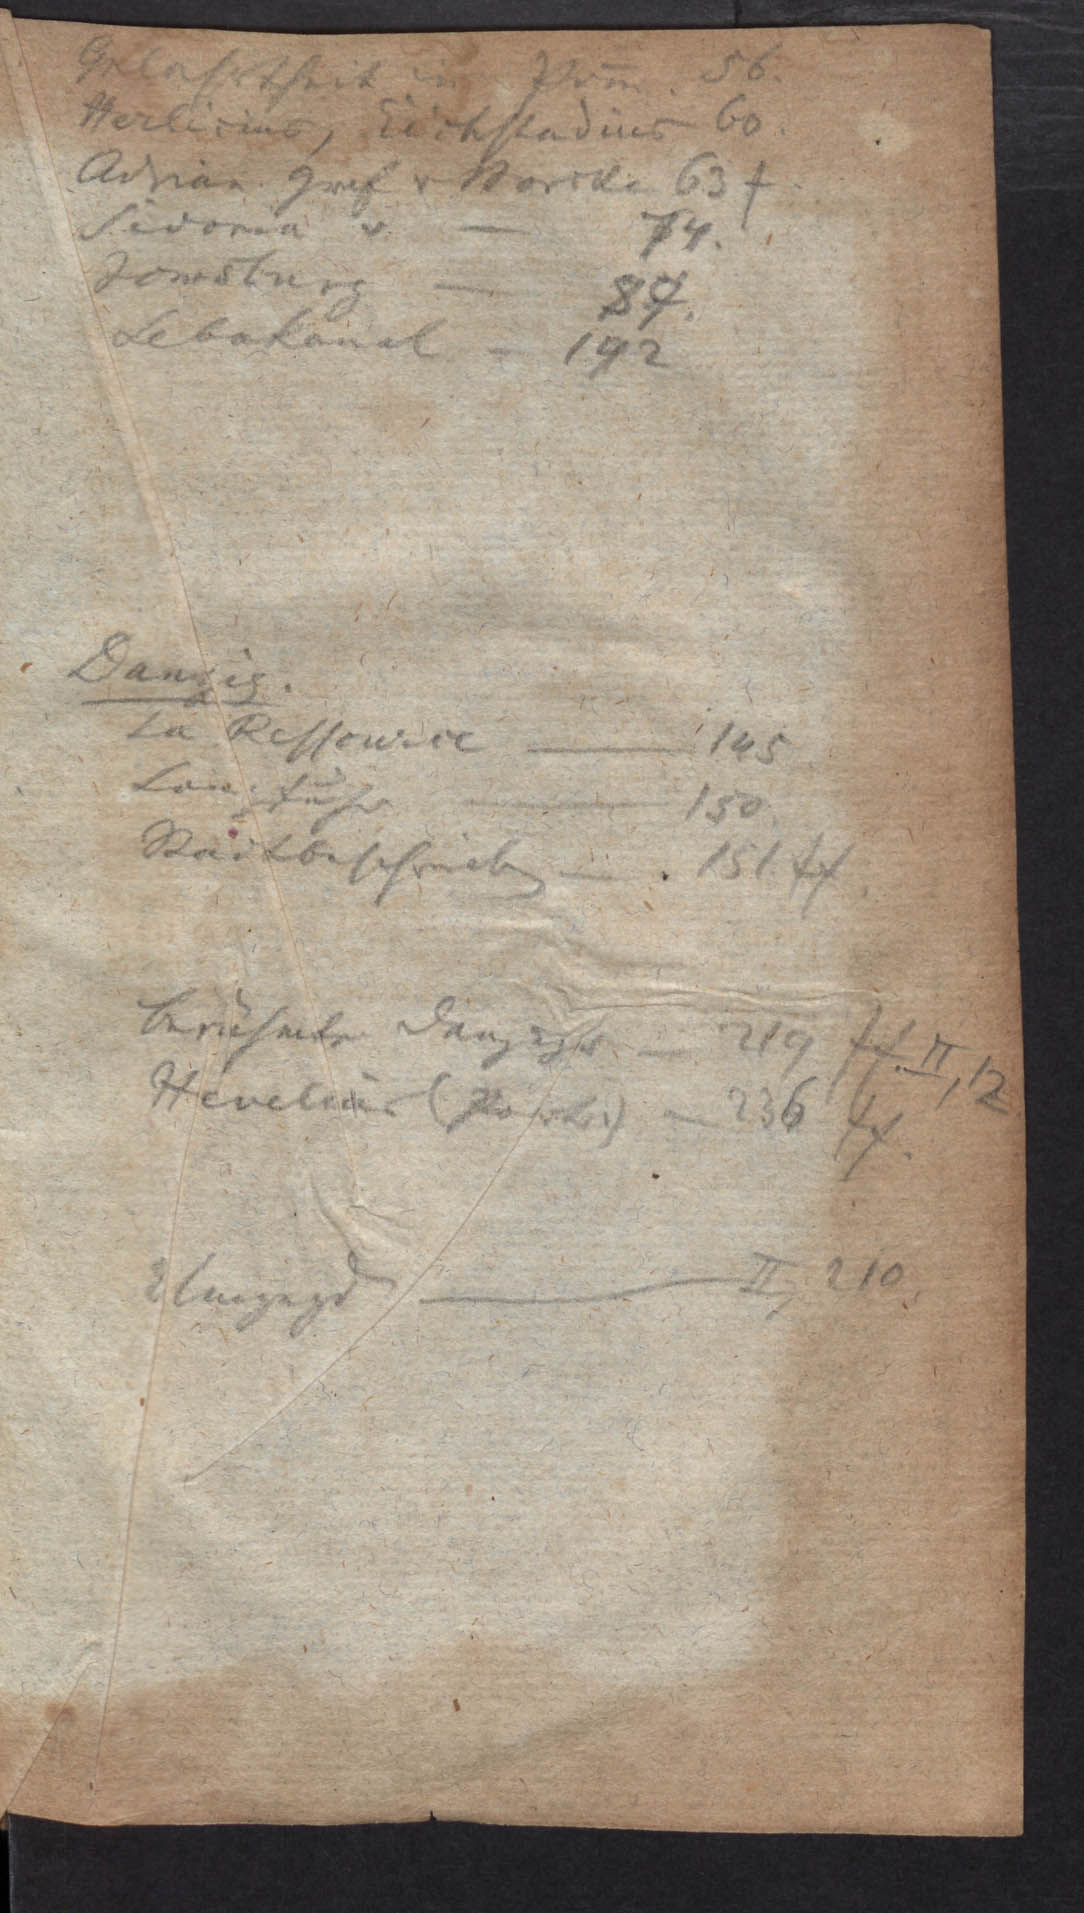 Gelehrtheit in Pom̄. 56.
Herlicius, Eichstadius 60.
Adrian Graf v. Borcke 63 f.
Sidonia v. — 74.
Jomsburg — 87.
Lebakanal — 192
Danzig.
La Ressource — 145
Langfuhr — 150.
Stadtbeschreib — 151 ff.
berühmte Danziger — 219 ff. II, 12
Hevelius — 236 ff.
II, 210.